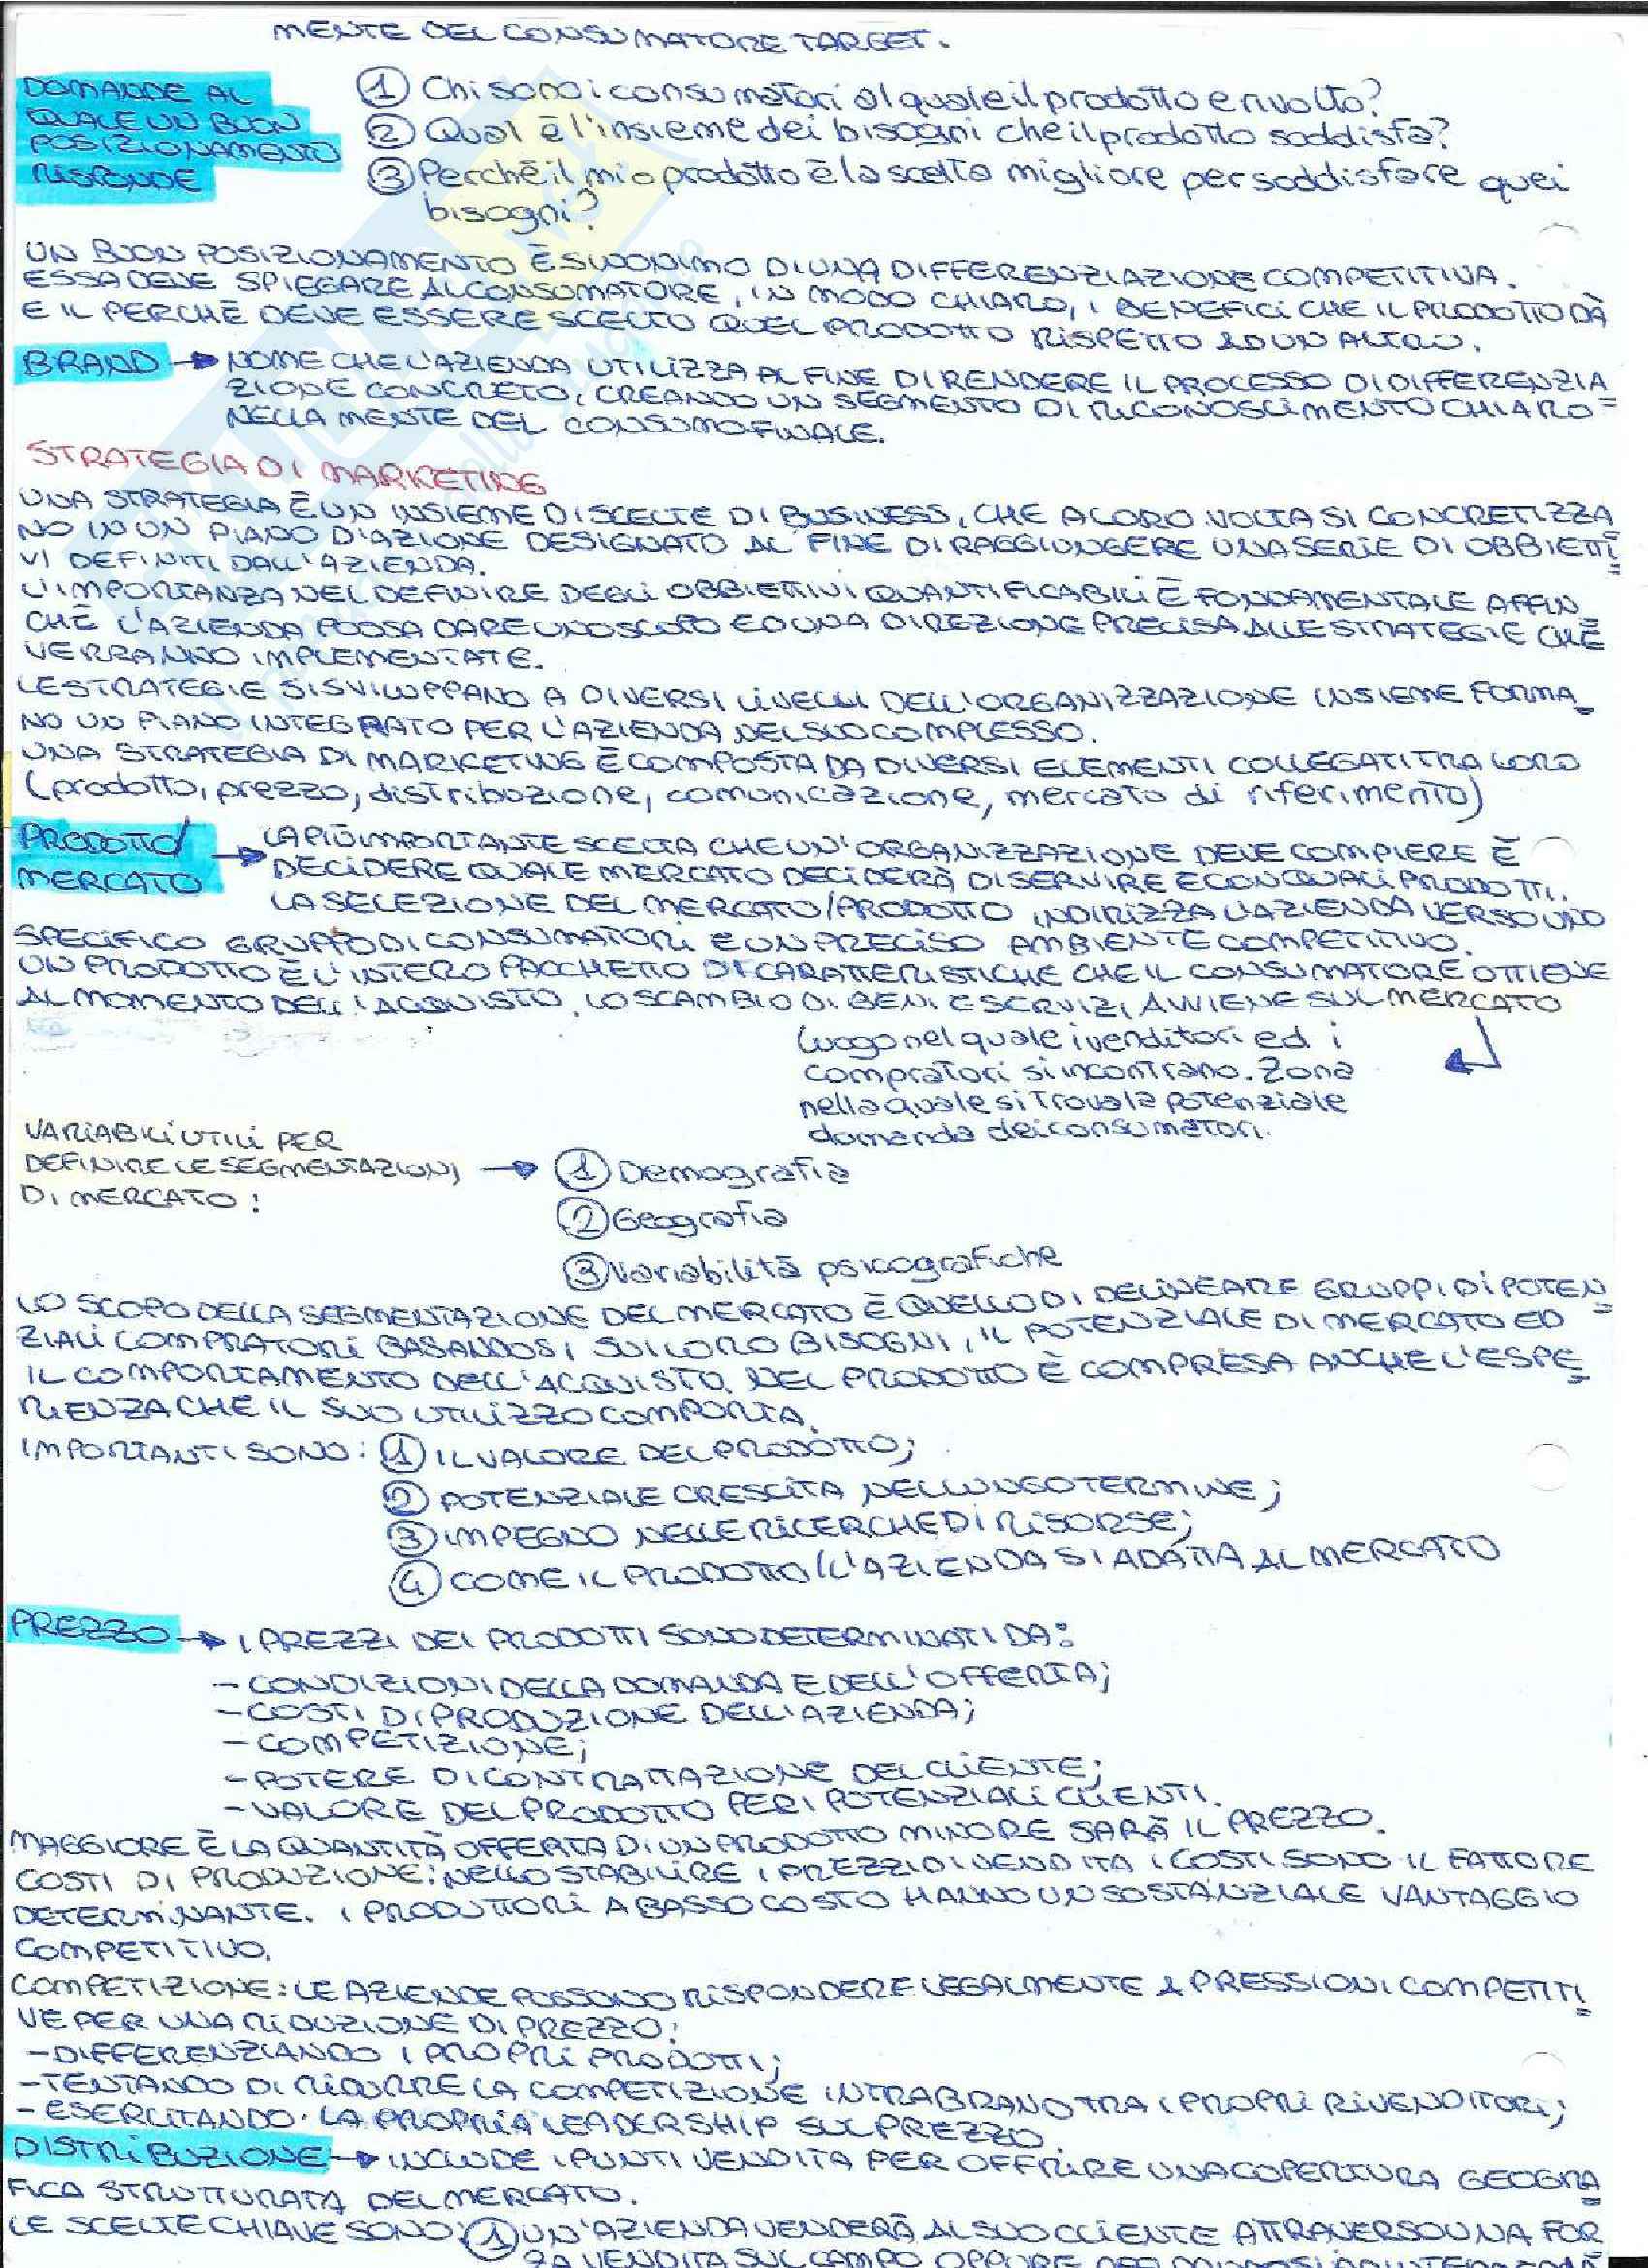 MENTE DEL CONSUMATORE TARGET.
DOMANDE AL
QUALE UN BUON
POSIZIONAMENTO
RISPONDE
① Chi sono i consumatori al quale il prodotto e rivolto?
② Qual è l'insieme dei bisogni che il prodotto soddisfa?
③ Perchè il mio prodotto è la scelta migliore per soddisfare quei
bisogni?
UN BUON POSIZIONAMENTO È SINONIMO DI UNA DIFFERENZIAZIONE COMPETITIVA.
ESSA DEVE SPIEGARE AL CONSUMATORE, IN MODO CHIARO, I BENEFICI CHE IL PRODOTTO DÀ
E IL PERCHÈ DEVE ESSERE SCELTO QUEL PRODOTTO RISPETTO AD UN ALTRO.
BRAND → NOME CHE L'AZIENDA UTILIZZA AL FINE DI RENDERE IL PROCESSO DI DIFFERENZIA
ZIONE CONCRETO, CREANDO UN SEGMENTO DI RICONOSCIMENTO CHIARO
NELLA MENTE DEL CONSUMO FINALE.
STRATEGIA DI MARKETING
UNA STRATEGIA È UN INSIEME DI SCELTE DI BUSINESS, CHE A LORO VOLTA SI CONCRETIZZA
NO IN UN PIANO D'AZIONE DESIGNATO AL FINE DI RAGGIUNGERE UNA SERIE DI OBBIETTI
VI DEFINITI DALL'AZIENDA.
L'IMPORTANZA NEL DEFINIRE DEGLI OBBIETTIVI QUANTIFICABILI È FONDAMENTALE AFFIN
CHÈ L'AZIENDA POSSA DARE UNO SCOPO ED UNA DIREZIONE PRECISA ALLE STRATEGIE CHE
VERRANNO IMPLEMENTATE.
LE STRATEGIE SI SVILUPPANO A DIVERSI LIVELLI DELL'ORGANIZZAZIONE INSIEME FORMA
NO UN PIANO INTEGRATO PER L'AZIENDA NEL SUO COMPLESSO.
UNA STRATEGIA DI MARKETING È COMPOSTA DA DIVERSI ELEMENTI COLLEGATI TRA LORO
(prodotto, prezzo, distribuzione, comunicazione, mercato di riferimento)
PRODOTTO/
MERCATO → LA PIÙ IMPORTANTE SCELTA CHE UN'ORGANIZZAZIONE DEVE COMPIERE È
DECIDERE QUALE MERCATO DECIDERÀ DI SERVIRE E CON QUALI PRODOTTI.
LA SELEZIONE DEL MERCATO/PRODOTTO INDIRIZZA L'AZIENDA VERSO UNO
SPECIFICO GRUPPO DI CONSUMATORI E UN PRECISO AMBIENTE COMPETITIVO.
UN PRODOTTO È L'INTERO PACCHETTO DI CARATTERISTICHE CHE IL CONSUMATORE OTTIENE
AL MOMENTO DELL'ACQUISTO. LO SCAMBIO DI BENI E SERVIZI AVVIENE SUL MERCATO
Luogo nel quale i venditori ed i
compratori si incontrano. Zona
nella quale si trova la potenziale
domanda dei consumatori.
VARIABILI UTILI PER
DEFINIRE LE SEGMENTAZIONI →
DI MERCATO:
① Demografia
② Geografia
③ Variabilità psicografiche
LO SCOPO DELLA SEGMENTAZIONE DEL MERCATO È QUELLO DI DELINEARE GRUPPI DI POTEN
ZIALI COMPRATORI BASANDOSI SUI LORO BISOGNI, IL POTENZIALE DI MERCATO ED
IL COMPORTAMENTO DELL'ACQUISTO. NEL PRODOTTO È COMPRESA ANCHE L'ESPE
RIENZA CHE IL SUO UTILIZZO COMPORTA.
IMPORTANTI SONO: ① IL VALORE DEL PRODOTTO;
② POTENZIALE CRESCITA NEL LUNGO TERMINE;
③ IMPEGNO NELLE RICERCHE DI RISORSE;
④ COME IL PRODOTTO/L'AZIENDA SI ADATTA AL MERCATO
PREZZO → I PREZZI DEI PRODOTTI SONO DETERMINATI DA:
- CONDIZIONI DELLA DOMANDA E DELL'OFFERTA;
- COSTI DI PRODUZIONE DELL'AZIENDA;
- COMPETIZIONE;
- POTERE DI CONTRATTAZIONE DEL CLIENTE;
- VALORE DEL PRODOTTO PER I POTENZIALI CLIENTI.
MAGGIORE È LA QUANTITÀ OFFERTA DI UN PRODOTTO MINORE SARÀ IL PREZZO.
COSTI DI PRODUZIONE: NELLO STABILIRE I PREZZI DI VENDITA I COSTI SONO IL FATTORE
DETERMINANTE. I PRODUTTORI A BASSO COSTO HANNO UN SOSTANZIALE VANTAGGIO
COMPETITIVO.
COMPETIZIONE: LE AZIENDE POSSONO RISPONDERE LEGALMENTE A PRESSIONI COMPETITI
VE PER UNA RIDUZIONE DI PREZZO:
- DIFFERENZIANDO I PROPRI PRODOTTI;
- TENTANDO DI RIDURRE LA COMPETIZIONE INTRABRAND TRA I PROPRI RIVENDITORI;
- ESERCITANDO LA PROPRIA LEADERSHIP SUL PREZZO.
DISTRIBUZIONE → INCLUDE I PUNTI VENDITA PER OFFRIRE UNA COPERTURA GEOGRA
FICA STRUTTURATA DEL MERCATO.
LE SCELTE CHIAVE SONO: ① UN'AZIENDA VENDERÀ AL SUO CLIENTE ATTRAVERSO UNA FOR
ZA VENDITA SUL CAMPO OPPURE